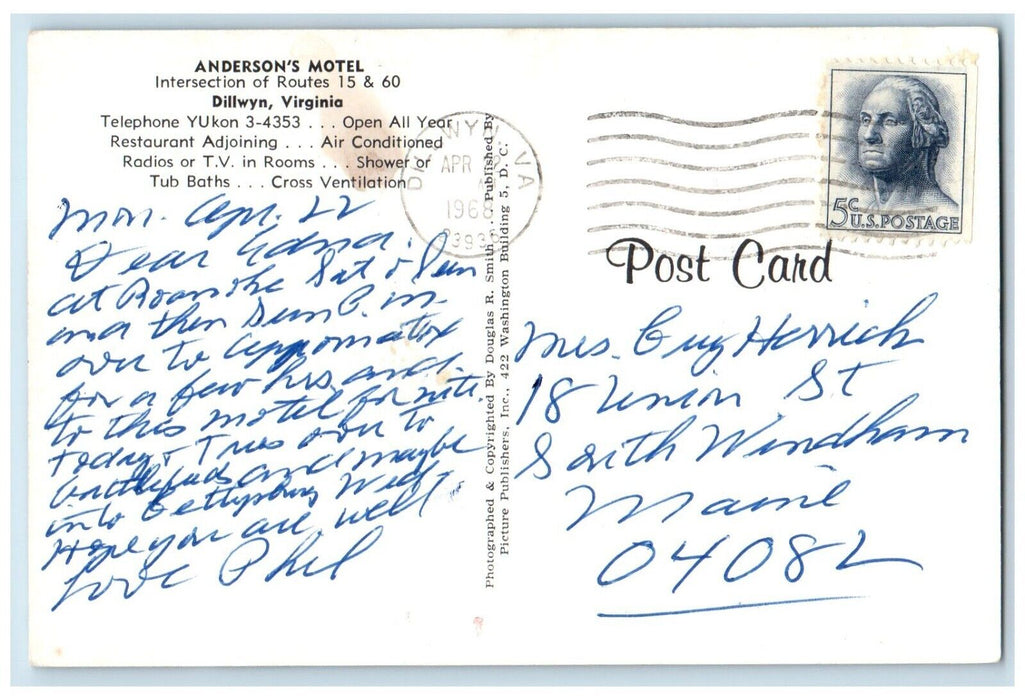 ANDERSON'S MOTEL
Intersection of Routes 15 & 60
Dillwyn, Virginia
Telephone YUkon 3-4353 . . . Open All Year
Restaurant Adjoining . . . Air Conditioned
Radios or T.V. in Rooms . . . Shower or
Tub Baths . . . Cross Ventilation
Mon. Apr. 22
Dear Edna.
at Roanoke Sat & Sun
and then Sun P. m.
over to Appomatox
for a few hrs and
to this motel for nite.
today & Tues over to
battlefields and maybe
into Gettysburg Wed.
Hope you are well
Love Phil
Photographed & Copyrighted By Douglas R. Smith . . Published By
Picture Publishers, Inc., 422 Washington Building 5, D. C.
WYN. VA
APR
1968
5c U.S. POSTAGE
Post Card
Mrs. Guy Herrick
18 Union St
South Windham
Maine
04082